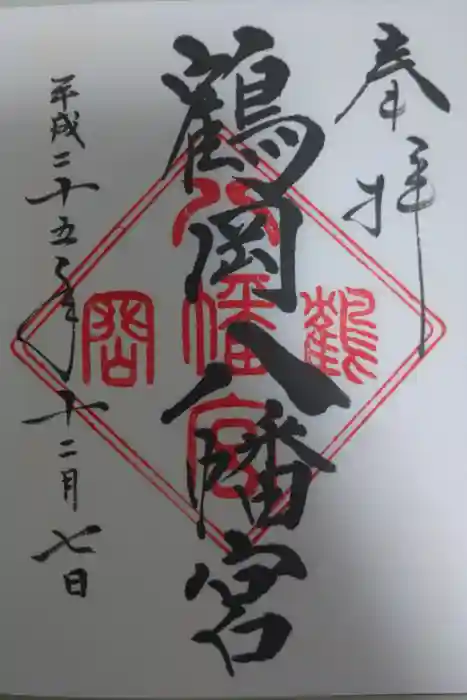 奉拝
鶴岡八幡宮
平成二十五年十二月七日
鶴
岡
八幡宮